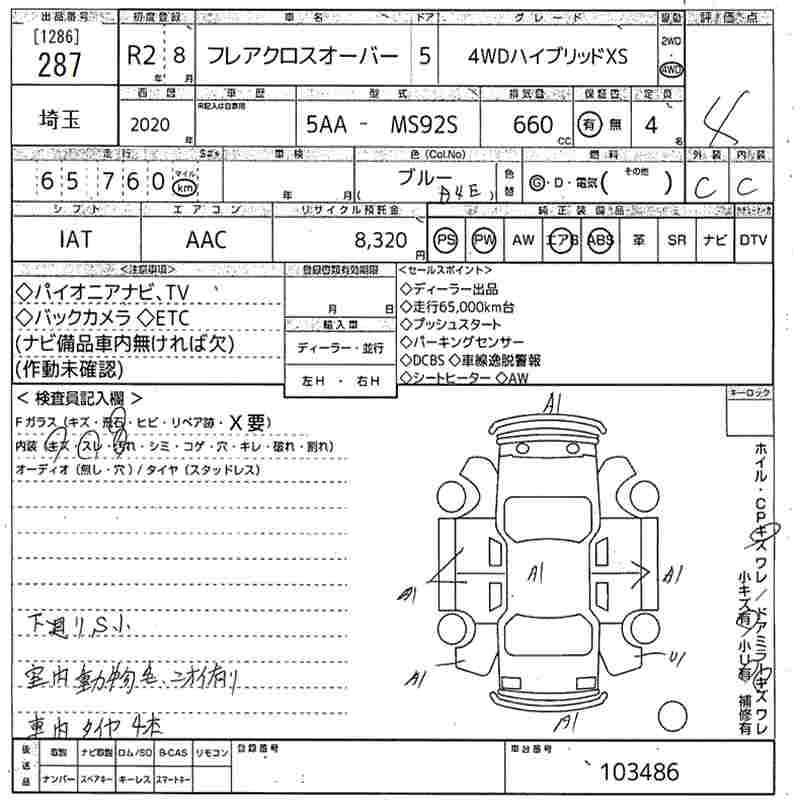 出品番号 初度登録 車名 ドア グレード 駆動 評価点
[1286]
287 R2年 8月 フレアクロスオーバー 5 4WDハイブリッドXS 2WD 4WD
4
西暦 車歴 型式 排気量 保証書 定員
埼玉 2020年 未記入は自家用 5AA - MS92S 660CC 有 無 4名
走行 S#5 車検 色(Col.No) 燃料 外装 内装
65760 マイル km 年 月 ブルー (B4E) 色替 G・D・電気( その他 ) C C
シフト エアコン リサイクル預託金 純正装備品
IAT AAC 8,320円 PS PW AW エアB ABS 革 SR ナビ DTV
<注意事項>
◇パイオニアナビ、TV
◇バックカメラ ◇ETC
(ナビ備品車内無ければ欠)
(作動未確認)
登録書類有効期限
月 日
輸入車
ディーラー・並行
左H ・ 右H
<セールスポイント>
◇ディーラー出品
◇走行65,000km台
◇プッシュスタート
◇パーキングセンサー
◇DCBS ◇車線逸脱警報
◇シートヒーター ◇AW
< 検査員記入欄 >
Fガラス(キズ・飛石・ヒビ・リペア跡・X要)
内装(キズ・スレ・汚れ・シミ・コゲ・穴・キレ・破れ・割れ)
オーディオ(無し・穴)/タイヤ(スタッドレス)
下廻りS小
室内動物毛、ニオイ有り
車内タイヤ4本
キーロック
A1
A1
A1
A1
A1
U1
A1
ホイル・CPキズ ワレ/ドアミラーキズ ワレ
小キズ有/小U有 補修有
後送品 取説 ナビ取説 ロム/SD B-CAS リモコン 登録番号 車台番号
ナンバー スペアキー キーレス スマートキー : 103486